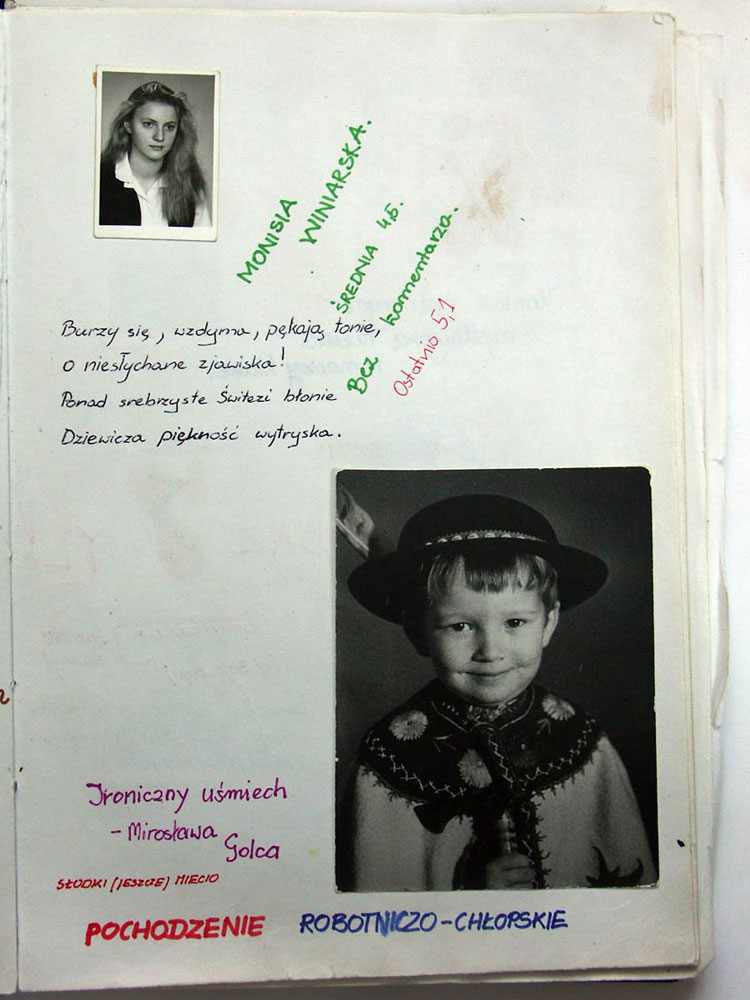 MONISIA
WINIARSKA.
ŚREDNIA 4,5.
Bez komentarza.
Ostatnio 5,1
Burzy się, wzdyma, pękają tonie,
o niesłychane zjawiska!
Ponad srebrzyste Świtezi błonie
Dziewicza piękność wytryska.
Ironiczny uśmiech
- Mirosława
Golca
SŁODKI (JESZCZE) MIECIO
POCHODZENIE ROBOTNICZO-CHŁOPSKIE